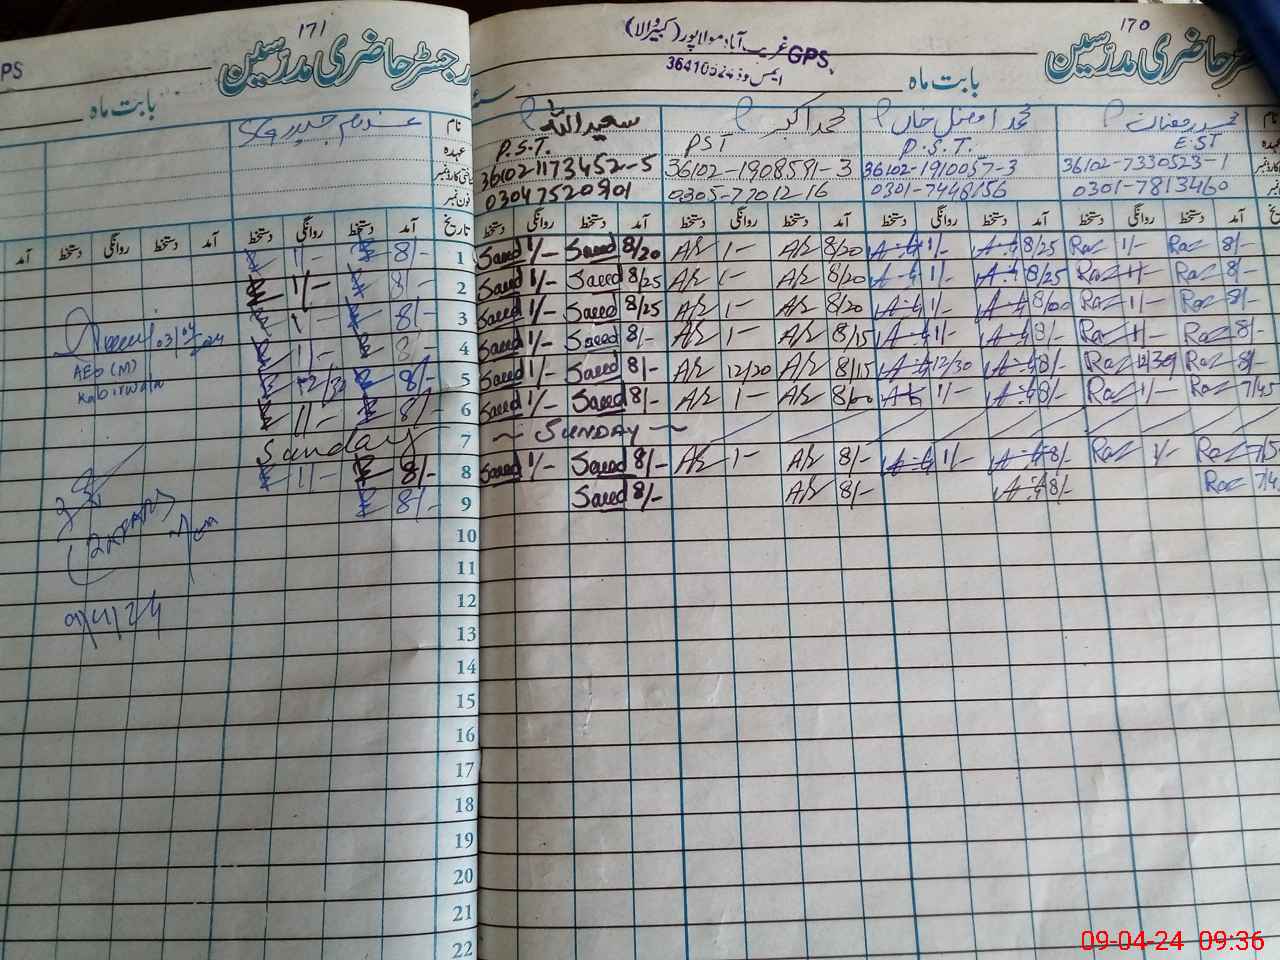 170
GPS غریب آباد مولا پور (کبیروالا)
ایمس کوڈ 36410524
رجسٹر حاضری مدرسین
بابت ماہ
نام محمد رمضان محمد افضل خاں محمد اکبر سعید اللہ
عہدہ E.ST P.S.T. PST P.S.T.
36102-7330523-1 36102-1910057-3 36102-1908591-3 36102-1173452-5
0301-7813460 0301-7448156 0305-7701216 03047520901
آمد دستخط روانگی دستخط آمد دستخط روانگی دستخط آمد دستخط روانگی دستخط آمد دستخط روانگی دستخط
8/- Raz 1/- Raz 8/25 1/- 8/20 A/R 1- A/R 8/20 Saeed 1/- Saeed
8/- Raz 1/- Raz 8/25 1/- 8/20 A/R 1- A/R 8/25 Saeed 1/- Saeed
8/- Raz 1/- Raz 8/00 1/- 8/20 A/R 1- A/R 8/25 Saeed 1/- Saeed
8/- Raz 1/- Raz 8/- 1/- 8/15 A/R 1- A/R 8/- Saeed 1/- Saeed
8/- Raz 12/30 Raz 8/- 12/30 8/15 A/R 12/20 A/R 8/- Saeed 1/- Saeed
7/45 Raz 1/- Raz 8/- 1/- 8/00 A/R 1- A/R 8/- Saeed 1/- Saeed
~ SUNDAY ~
Raz 1/- Raz 8/- 1/- 8/- A/R 1- A/R 8/- Saeed 1/- Saeed
Raz 8/- 8/- A/R 8/- Saeed
171
رجسٹر حاضری مدرسین
PS
بابت ماہ
نام غلام حیدر
عہدہ
شناختی کارڈ نمبر
فون نمبر
تاریخ آمد دستخط روانگی دستخط آمد دستخط روانگی دستخط آمد
1 8/- 1/-
2 8/- 1/-
3 8/- 1/-
4 8/- 1/-
5 8/- 12/30
6 8/- 1/-
7 Sunday
8 8/- 1/-
9 8/-
10
11
12
13
14
15
16
17
18
19
20
21
22
03/04/2024
AEO (M)
Kabirwala
9/4/24
09-04-24 09:36